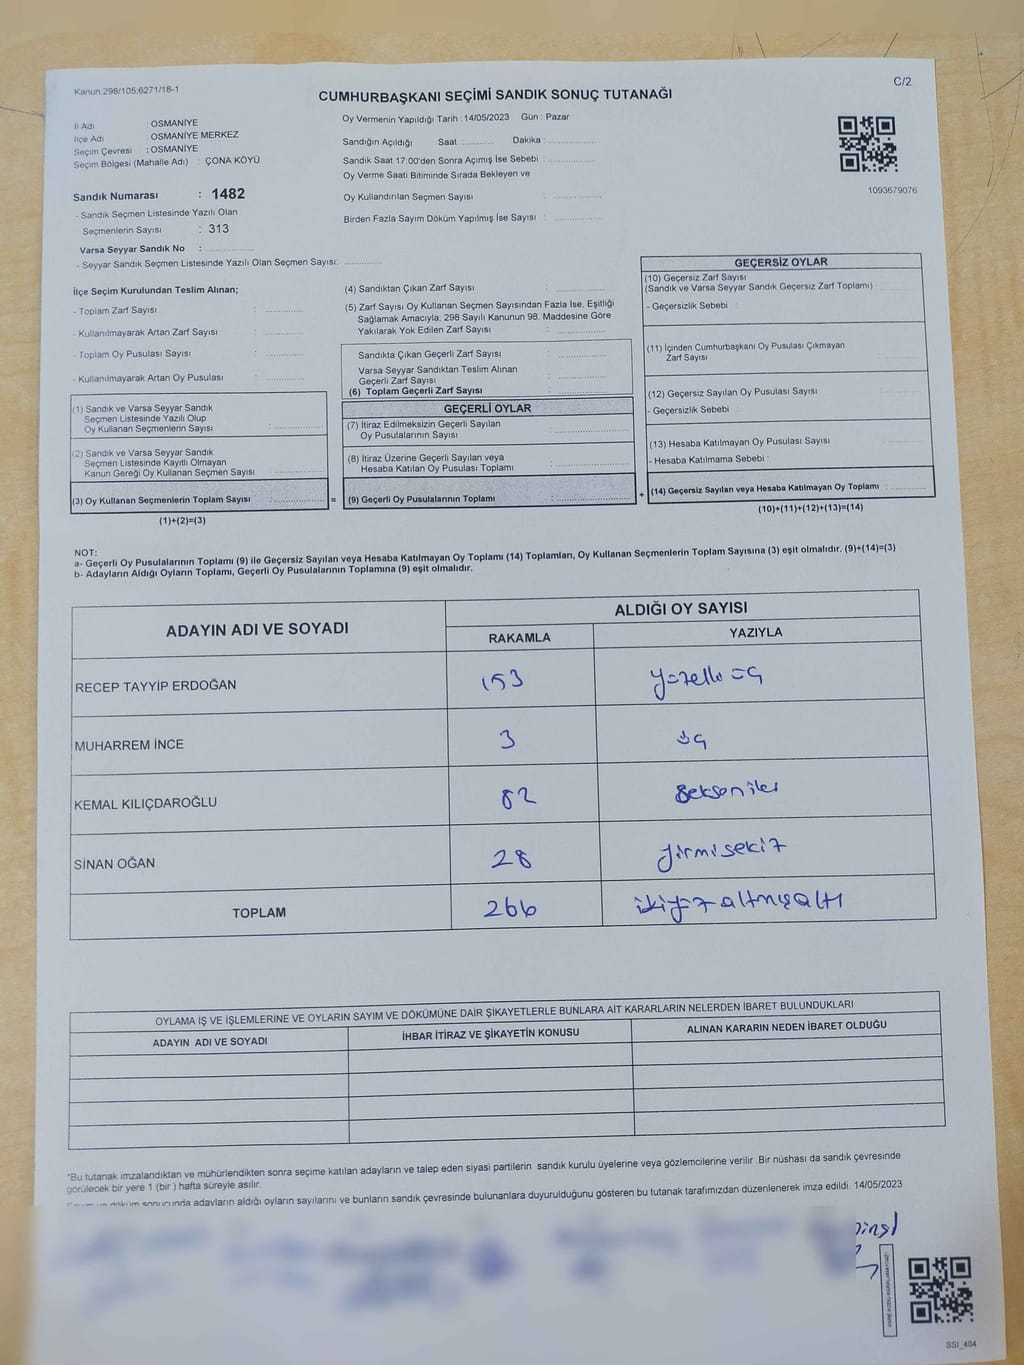 Kanun.298/105;6271/18-1
C/2
CUMHURBAŞKANI SEÇİMİ SANDIK SONUÇ TUTANAĞI
İl Adı : OSMANİYE
İlçe Adı : OSMANİYE MERKEZ
Seçim Çevresi : OSMANİYE
Seçim Bölgesi (Mahalle Adı) : ÇONA KÖYÜ
Sandık Numarası : 1482
- Sandık Seçmen Listesinde Yazılı Olan
Seçmenlerin Sayısı : 313
Varsa Seyyar Sandık No :
- Seyyar Sandık Seçmen Listesinde Yazılı Olan Seçmen Sayısı:
Oy Vermenin Yapıldığı Tarih : 14/05/2023 Gün : Pazar
Sandığın Açıldığı Saat Dakika :
Sandık Saat 17.00'den Sonra Açımış İse Sebebi :
Oy Verme Saati Bitiminde Sırada Bekleyen ve
Oy Kullandırılan Seçmen Sayısı :
Birden Fazla Sayım Döküm Yapılmış İse Sayısı :
1093679076
İlçe Seçim Kurulundan Teslim Alınan;
- Toplam Zarf Sayısı :
- Kullanılmayarak Artan Zarf Sayısı :
- Toplam Oy Pusulası Sayısı :
- Kullanılmayarak Artan Oy Pusulası :
(1) Sandık ve Varsa Seyyar Sandık
Seçmen Listesinde Yazılı Olup
Oy Kullanan Seçmenlerin Sayısı :
(2) Sandık ve Varsa Seyyar Sandık
Seçmen Listesinde Kayıtlı Olmayan
Kanun Gereği Oy Kullanan Seçmen Sayısı :
(3) Oy Kullanan Seçmenlerin Toplam Sayısı : =
(1)+(2)=(3)
(4) Sandıktan Çıkan Zarf Sayısı :
(5) Zarf Sayısı Oy Kullanan Seçmen Sayısından Fazla İse, Eşitliği
Sağlamak Amacıyla; 298 Sayılı Kanunun 98. Maddesine Göre
Yakılarak Yok Edilen Zarf Sayısı :
Sandıkta Çıkan Geçerli Zarf Sayısı :
Varsa Seyyar Sandıktan Teslim Alınan
Geçerli Zarf Sayısı :
(6) Toplam Geçerli Zarf Sayısı :
GEÇERLİ OYLAR
(7) İtiraz Edilmeksizin Geçerli Sayılan
Oy Pusulalarının Sayısı :
(8) İtiraz Üzerine Geçerli Sayılan veya
Hesaba Katılan Oy Pusulası Toplamı :
(9) Geçerli Oy Pusulalarının Toplamı : +
GEÇERSİZ OYLAR
(10) Geçersiz Zarf Sayısı
(Sandık ve Varsa Seyyar Sandık Geçersiz Zarf Toplamı) :
- Geçersizlik Sebebi :
(11) İçinden Cumhurbaşkanı Oy Pusulası Çıkmayan
Zarf Sayısı :
(12) Geçersiz Sayılan Oy Pusulası Sayısı :
- Geçersizlik Sebebi :
(13) Hesaba Katılmayan Oy Pusulası Sayısı :
- Hesaba Katılmama Sebebi :
(14) Geçersiz Sayılan veya Hesaba Katılmayan Oy Toplamı :
(10)+(11)+(12)+(13)=(14)
NOT:
a- Geçerli Oy Pusulalarının Toplamı (9) ile Geçersiz Sayılan veya Hesaba Katılmayan Oy Toplamı (14) Toplamları, Oy Kullanan Seçmenlerin Toplam Sayısına (3) eşit olmalıdır. (9)+(14)=(3)
b- Adayların Aldığı Oyların Toplamı, Geçerli Oy Pusulalarının Toplamına (9) eşit olmalıdır.
ADAYIN ADI VE SOYADI
ALDIĞI OY SAYISI
RAKAMLA YAZIYLA
RECEP TAYYİP ERDOĞAN 153 yüzelli üç
MUHARREM İNCE 3 üç
KEMAL KILIÇDAROĞLU 82 seksen iki
SİNAN OĞAN 28 yirmi sekiz
TOPLAM 266 ikiyüz altmışaltı
OYLAMA İŞ VE İŞLEMLERİNE VE OYLARIN SAYIM VE DÖKÜMÜNE DAİR ŞİKAYETLERLE BUNLARA AİT KARARLARIN NELERDEN İBARET BULUNDUKLARI
ADAYIN ADI VE SOYADI İHBAR İTİRAZ VE ŞİKAYETİN KONUSU ALINAN KARARIN NEDEN İBARET OLDUĞU
*Bu tutanak imzalandıktan ve mühürlendikten sonra seçime katılan adayların ve talep eden siyasi partilerin sandık kurulu üyelerine veya gözlemcilerine verilir .Bir nüshası da sandık çevresinde
görülecek bir yere 1 (bir ) hafta süreyle asılır.
döküm sonucunda adayların aldığı oyların sayılarını ve bunların sandık çevresinde bulunanlara duyurulduğunu gösteren bu tutanak tarafımızdan düzenlenerek imza edildi. 14/05/2023
SSI_404